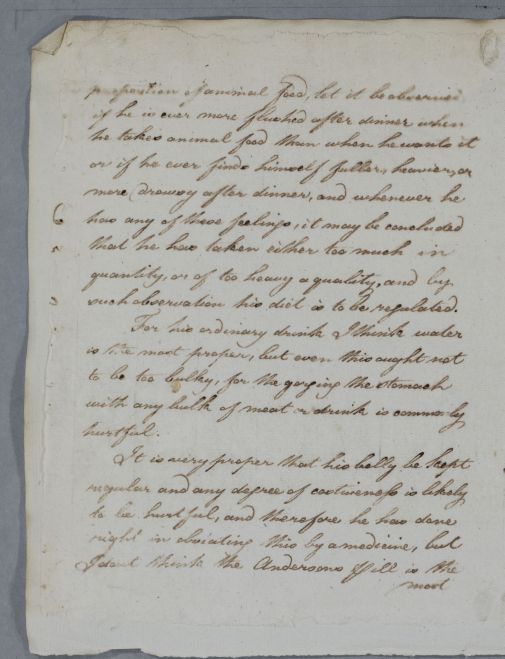 proportion of animal food, let it be observed
if he is ever more flushed after dinner when
he takes animal food than when he wants it
or if he ever finds himself fuller, heavier, or
more drowsy after dinner, and whenever he
has any of these feelings, it may be concluded
that he has taken either too much in
quantity, or of too heavy a quality, and by
such observation his diet is to be regulated.
For his ordinary drink I think water
is the most proper, but even this ought not
to be too bulky, for the gorging the stomach
with any bulk of meat or drink is commonly
hurtful.
It is very proper that his belly be kept
regular and any degree of costiveness is likely
to be hurtful, and therefore he has done
right in obviating this by a medicine, but
I dont think the Andersons Pill is the
most